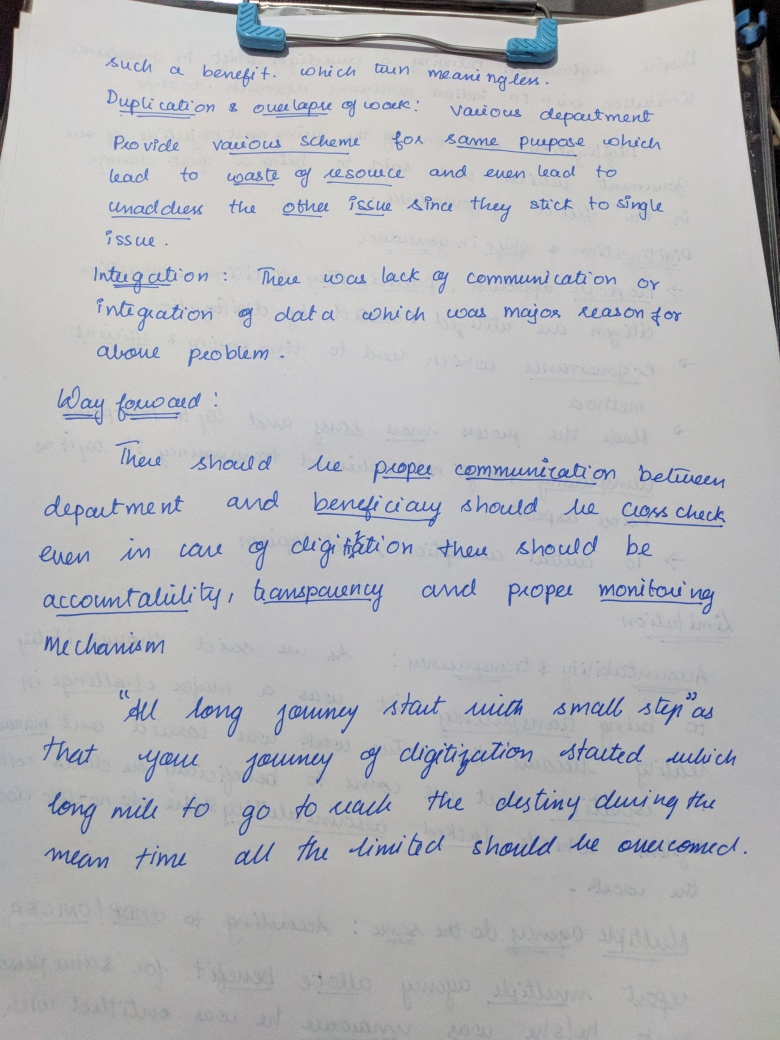 such a benefit. which turn meaningless.
Duplication & overlapse of work: various department
Provide various scheme for same purpose which
lead to waste of resource and even lead to
unaddress the other issue since they stick to single
issue.
Integation: There was lack of communication or
integration of data which was major reason for
above problem.
Way forward:
There should be proper communication between
department and beneficiary should be cross check
even in case of digitization there should be
accountability, transparency and proper monitoring
mechanism
"All long journey start with small step" as
that your journey of digitization started which
long mile to go to reach the destiny during the
mean time all the limited should be overcomed.